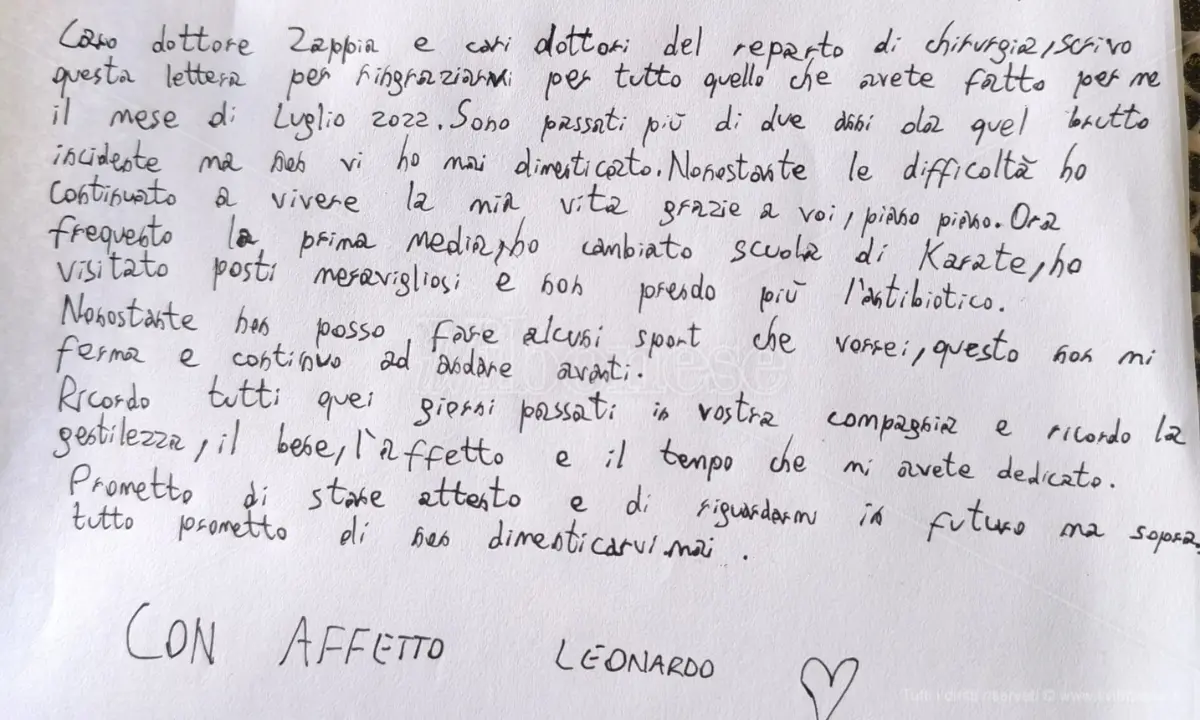 Caro dottore Zappia e cari dottori del reparto di chirurgia, scrivo
questa lettera per ringraziarvi per tutto quello che avete fatto per me
il mese di Luglio 2022. Sono passati più di due anni da quel brutto
incidente ma non vi ho mai dimenticato. Nonostante le difficoltà ho
continuato a vivere la mia vita grazie a voi, piano piano. Ora
frequento la prima media, ho cambiato scuola di Karate, ho
visitato posti meravigliosi e non prendo più l'antibiotico.
Nonostante non posso fare alcuni sport che vorrei, questo non mi
ferma e continuo ad andare avanti.
Ricordo tutti quei giorni passati in vostra compagnia e ricordo la
gentilezza, il bene, l'affetto e il tempo che mi avete dedicato.
Prometto di stare attento e di riguardarmi in futuro ma sopra
tutto prometto di non dimenticarvi mai.
CON AFFETTO LEONARDO
Tutti i diritti riservati ©